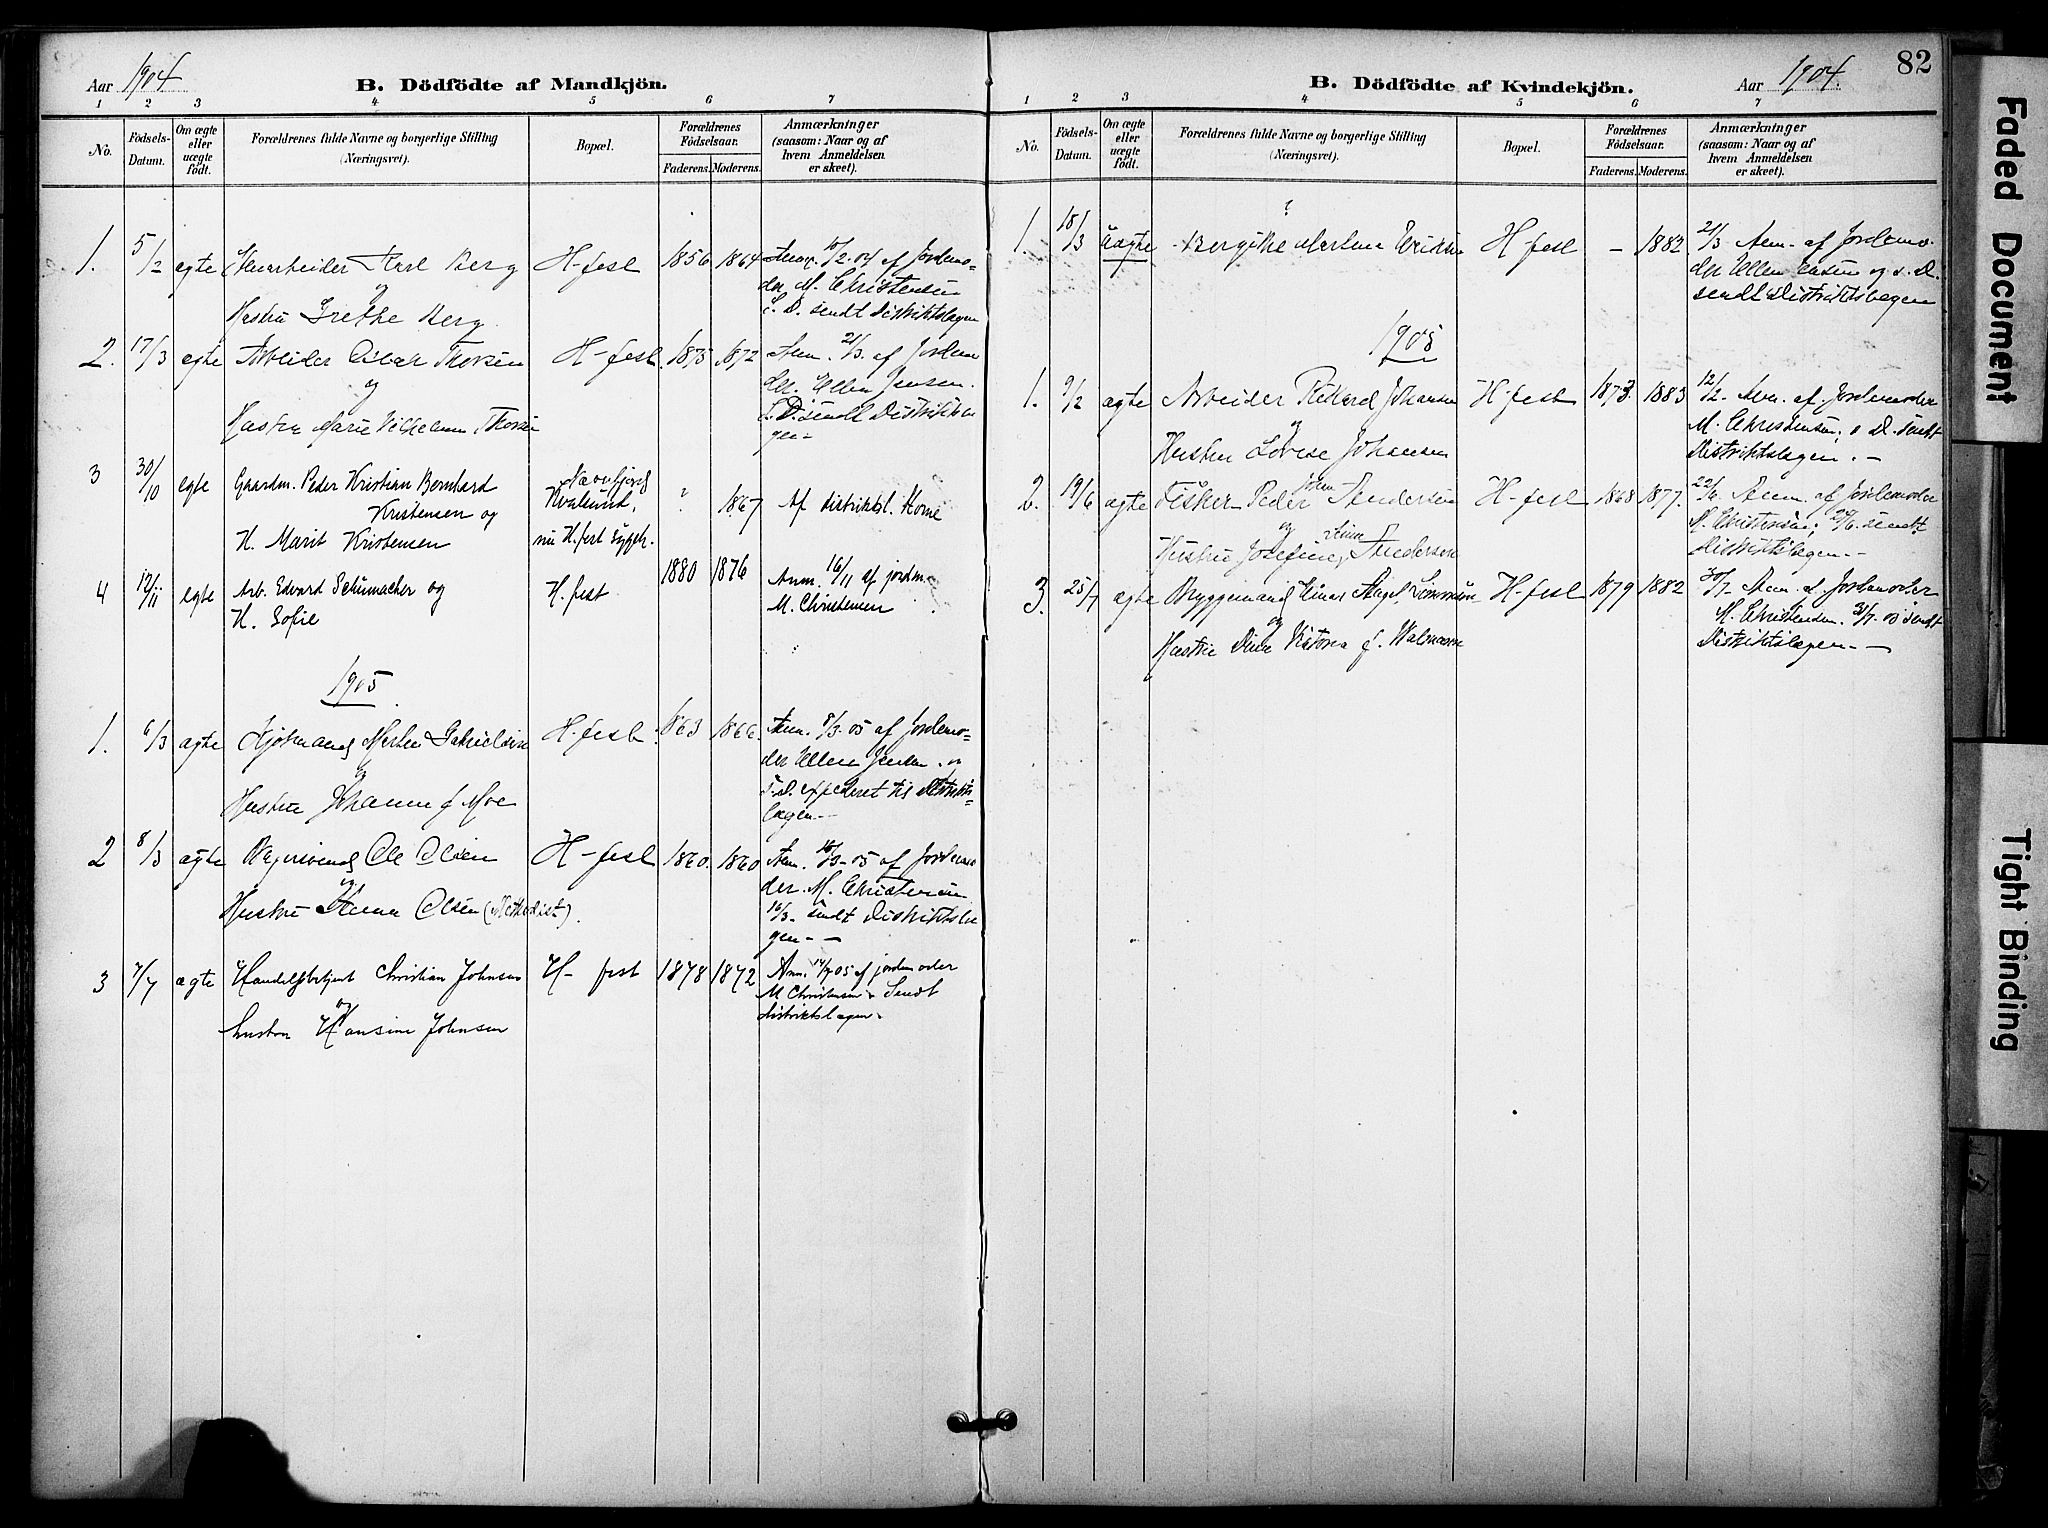 Aar 1904
B. Dödfödte af Mandkjön.
1 2 3 4 5 6 7
No.
Födsels-Datum.
Om ægte eller uægte födt.
Forældrenes fulde Navne og borgerlige Stilling
(Næringsvei).
Bopæl.
Forældrenes Födselsaar.
Faderens. Moderens.
Anmærkninger
(saasom: Naar og af
hvem Anmeldelsen
er skeet).
1. 5/2 egte Karl Berg H-fest 1856 1864 10/2 04 af Jordemo-
og
der M. Christensen
Hustru Grethe Berg
S. D. sendt Distriktslægen
2. 17/3 egte Arbeider Thorsen H-fest. 1875 1872 Anm. 21/3. af Jordemo
og
der. Ellen Jensen.
Hustru Marie Vilhelmine Thorsen
gen-
3 30/10 egte Gaardm. Peder Kristian Bernhard
Kristensen og
H. Marit Kristensen
Kvalsund,
nu H.fest Sygeh.
? 1867 Af distriktsl. Horne
4 12/11 egte Arb. Edvard Schumacher og
H. Sofie
H. fest 1880 1876 Anm. 16/11 af jordm.
M. Christensen
1905
1. 6/3 ægte H-fest. 1863 1866. Anm. 8/3 05 af Jordemo-
og
der Ellen Jensen.
Hustru Johanne f. Moe
S.D. expederet til Distrikts-
lægen-
2 8/3 ægte Ole Olsen H-fest 1860. 1860 Anm. 05 af Jordemo
og
der. M. Christensen
Hustru Anna Olsen (Methodist).
16/3. sendt Distriktslæ
gen-
3 7/7 ægte Handelsbetjent Christian Johnsen H-fest 1878 1872 Anm. 05 af jordemoder
og
M Christensen Sendt
hustru Hansine Johnsen
distriktslægen.
82
B. Dödfödte af Kvindekjön.
Aar 1904.
1 2 3 4 5 6 7
No.
Födsels-Datum.
Om ægte eller uægte födt.
Forældrenes fulde Navne og borgerlige Stilling
(Næringsvei).
Bopæl.
Forældrenes Födselsaar.
Faderens. Moderens.
Anmærkninger
(saasom: Naar og af
hvem Anmeldelsen
er skeet).
?
1. 18/3 uægte H-fest - 1882. 21/3 Anm. af Jordemo-
der Ellen Jensen og s. D.
sendt Distriktslægen
1905
1. 9/2 ægte Arbeider Rikard Johansen H-fest 1873. 1883 12/2. Anm. af Jordemoder
og
M. Christensen; s D. sendt
Hustru Lovise Johansen
Distriktslægen. -
2. 19/6 ægte Fisker Peder Johan Andersen H-fest 1868 1877. 22/6. Anm. af Jordemoder
og
M. Christensen; sendt
Hustru Josefine Andersen
Distriktslægen.-
3. 25/7 ægte Bryggemand Einar Aagel Simonsen H-fest 1879 1882 30/7. Anm. af Jordemoder
og
M. Christensen. 31/7. 05 sendt
Hustru Viktoria f.
Distriktslægen.-
Faded Document
Tight Binding